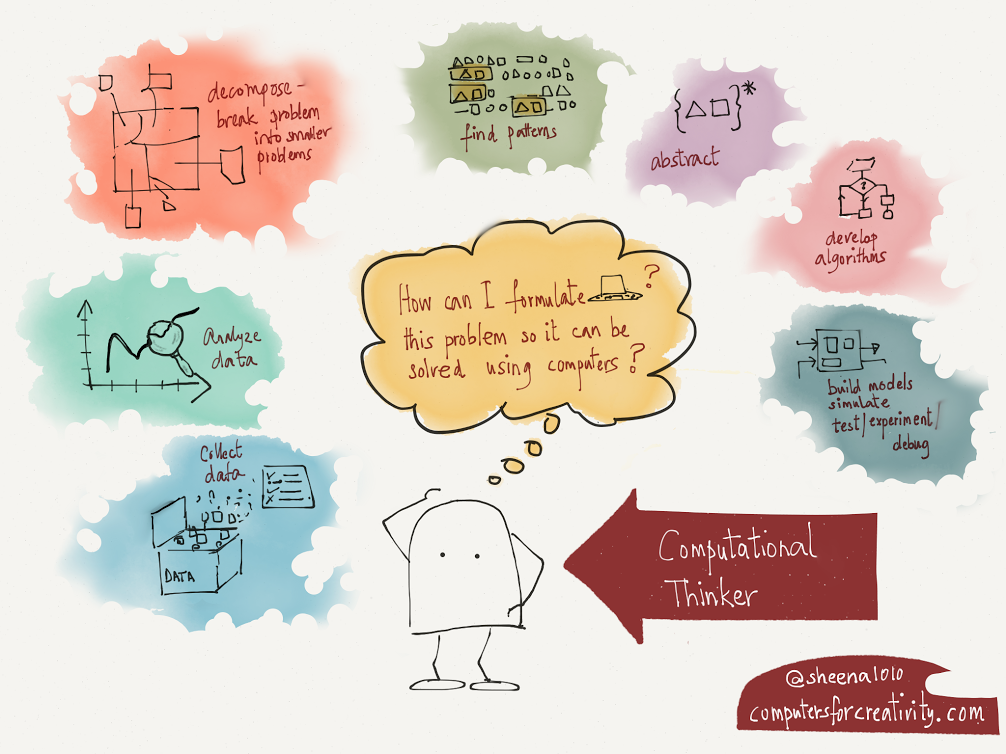 decompose -
break problem
into smaller
problems
find patterns
{ }*
abstract
develop
algorithms
?
Analyze
data
How can I formulate ?
this problem so it can be
solved using computers ?
build models
simulate
test/experiment/
debug
Collect
data
DATA
Computational
Thinker
@sheena1010
computersforcreativity.com